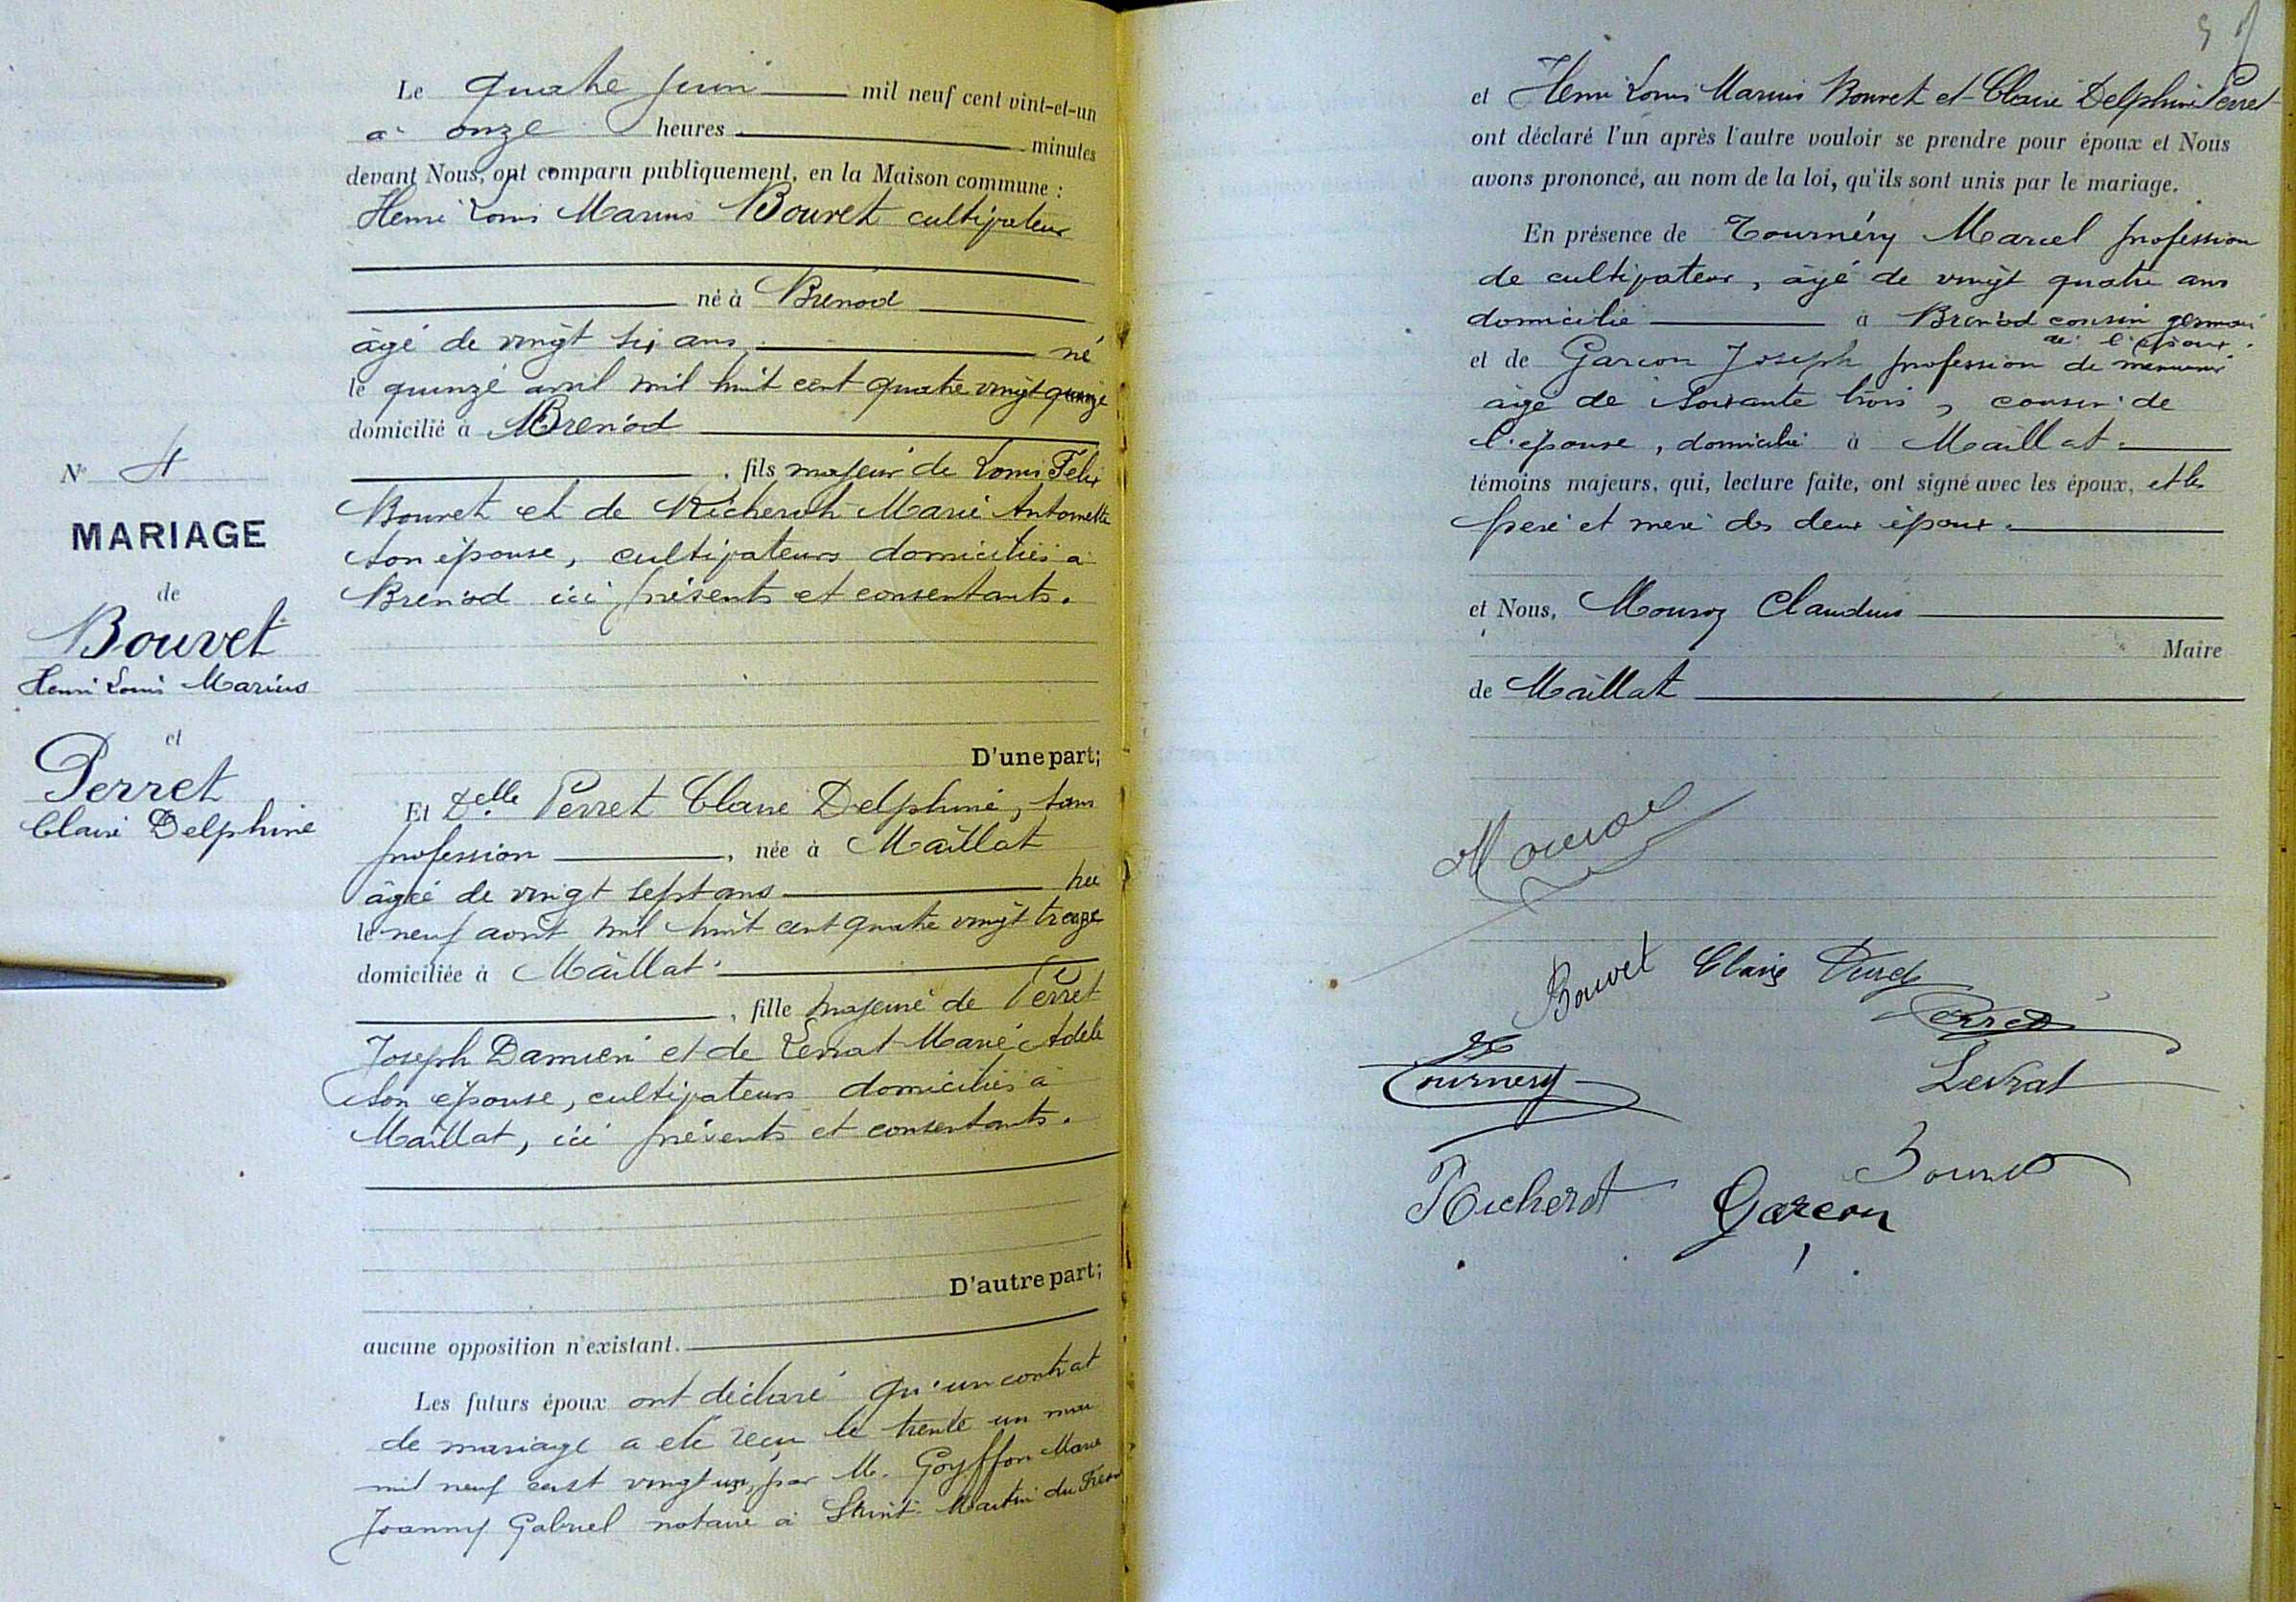 Le quatre Juin mil neuf cent vint-et-un
à onze heures minutes
devant Nous, ont comparu publiquement, en la Maison commune :
Henri Louis Marius Bouvet cultivateur
né à Brénod
âgé de vingt six ans né
le quinze avril mil huit cent quatre vingt quinze
domicilié à Brénod
, fils majeur de Louis Félix
Bouvet et de Richerot Marie Antoinette
son épouse, cultivateurs domiciliés à
Brénod ici présents et consentants.
N° 4
MARIAGE
de
Bouvet
Henri Louis Marius
et
Perret
Claire Delphine
D'une part;
Et Delle Perret Claire Delphine, sans
profession , née à Maillat
âgée de vingt sept ans née
le neuf août mil huit cent quatre vingt treize
domiciliée à Maillat
, fille majeure de Perret
Joseph Damien et de Levrat Marie Adèle
son épouse, cultivateurs domiciliés à
Maillat, ici présents et consentants.
D'autre part;
aucune opposition n'existant.
Les futurs époux ont déclaré qu'un contrat
de mariage a été reçu le trente un mai
mil neuf cent vingt un, par M. Goyffon Marie
Joanny Gabriel notaire à Saint-Martin du Fresne
et Henri Louis Marius Bouvet et Claire Delphine Perret
ont déclaré l'un après l'autre vouloir se prendre pour époux et Nous
avons prononcé, au nom de la loi, qu'ils sont unis par le mariage.
En présence de Tournéry Marcel profession
de cultivateur, âgé de vingt quatre ans
domicilié à Brénod cousin germain
de l'époux.
et de Garcon Joseph profession de menuisier
âgé de soixante trois, cousin de
l'épouse, domicilié à Maillat
témoins majeurs, qui, lecture faite, ont signé avec les époux, et les
père et mère des deux époux.
et Nous, Mouroz Claudius
Maire
de Maillat
Mouroz
Bouvet Claire Perret
Perret
Tournery
Levrat
Bouvet
Richerot Garcon